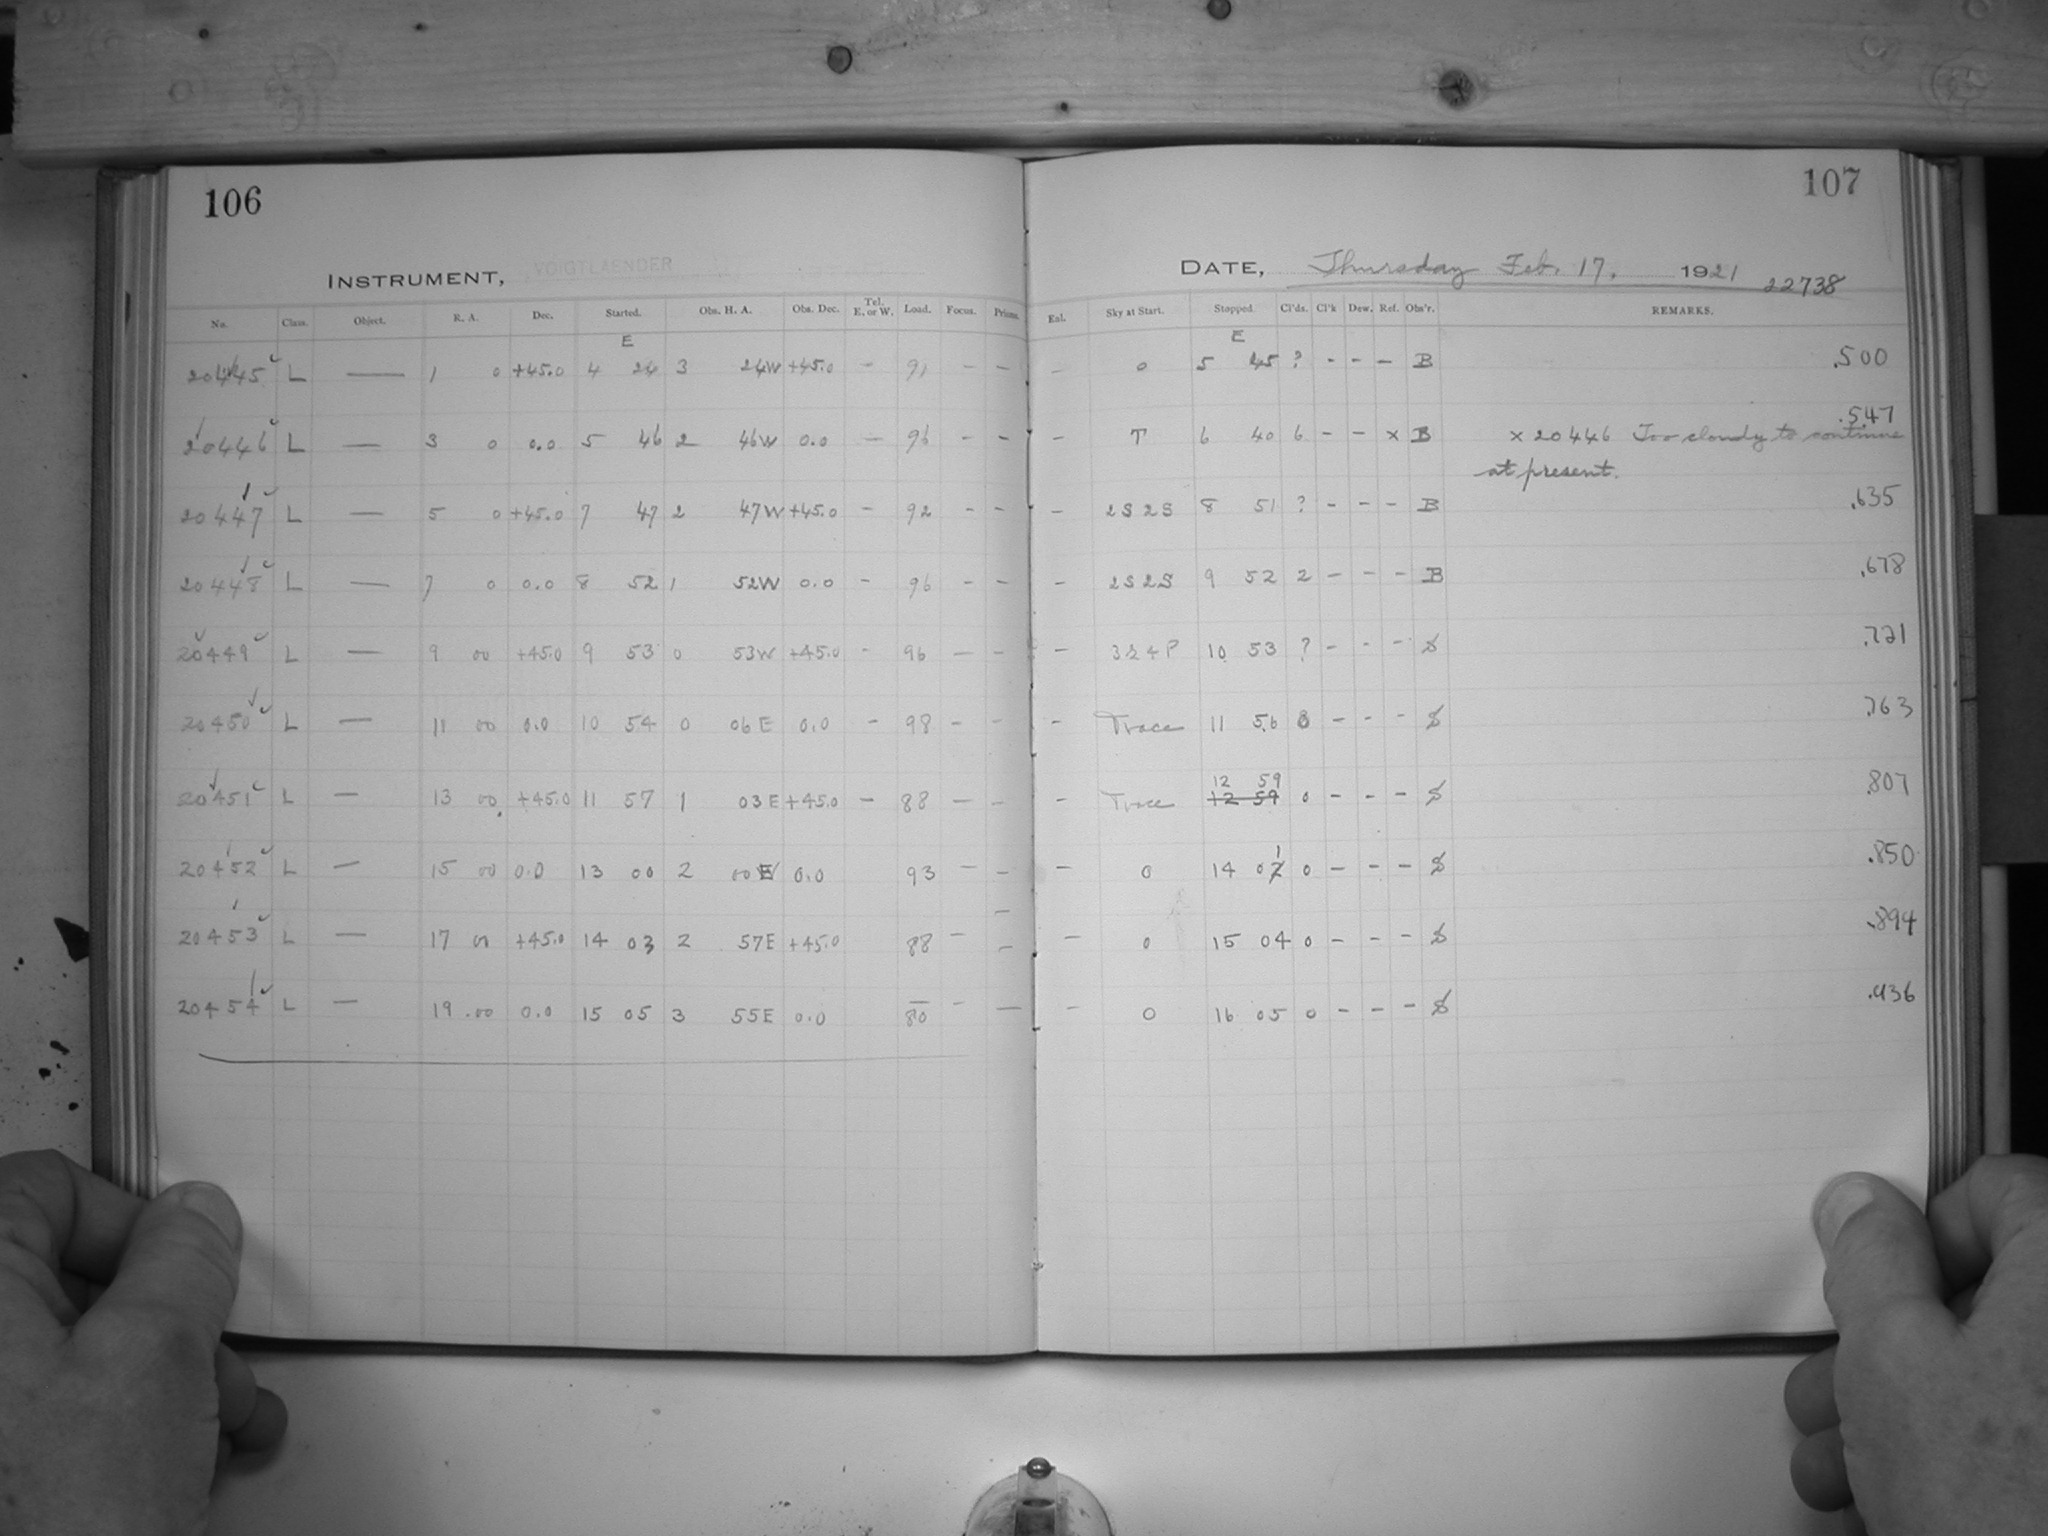 106
INSTRUMENT, VOIGTLAENDER
No. Class. Object. R. A. Dec. Started. Obs. H. A. Obs. Dec. Tel. E. or W. Load. Focus. Prisms.
E
20445 L — 1 0 +45.0 4 24 3 24W +45.0 - 91 - -
20446 L — 3 0 0.0 5 46 2 46W 0.0 - 96 - -
20447 L — 5 0 +45.0 7 47 2 47W +45.0 - 92 - -
20448 L — 7 0 0.0 8 52 1 52W 0.0 - 96 - -
20449 L — 9 00 +45.0 9 53 0 53W +45.0 - 96 - -
20450 L — 11 00 0.0 10 54 0 06E 0.0 - 98 - -
20451 L — 13 00 +45.0 11 57 1 03E +45.0 - 88 - -
20452 L — 15 00 0.0 13 00 2 00E 0.0 93 - -
20453 L — 17 00 +45.0 14 03 2 57E +45.0 88 - -
20454 L — 19 00 0.0 15 05 3 55E 0.0 80 - -
107
DATE, Thursday Feb. 17, 1921 22738
Eal. Sky at Start. Stopped Cl'ds. Cl'k Dew. Ref. Obs'r. REMARKS.
E
- 0 5 45 ? - - - B .500
.547
- T 6 40 6 - - x B x 20446 Too cloudy to continue
at present.
- 2S2S 8 51 ? - - - B .635
- 2S2S 9 52 2 - - - B .678
- 3S4P 10 53 ? - - - S .721
- Trace 11 56 8 - - - S .763
12 59
- Trace 12 59 0 - - - S .807
- 0 14 01 0 - - - S .850
- 0 15 04 0 - - - S .894
- 0 16 05 0 - - - S .936